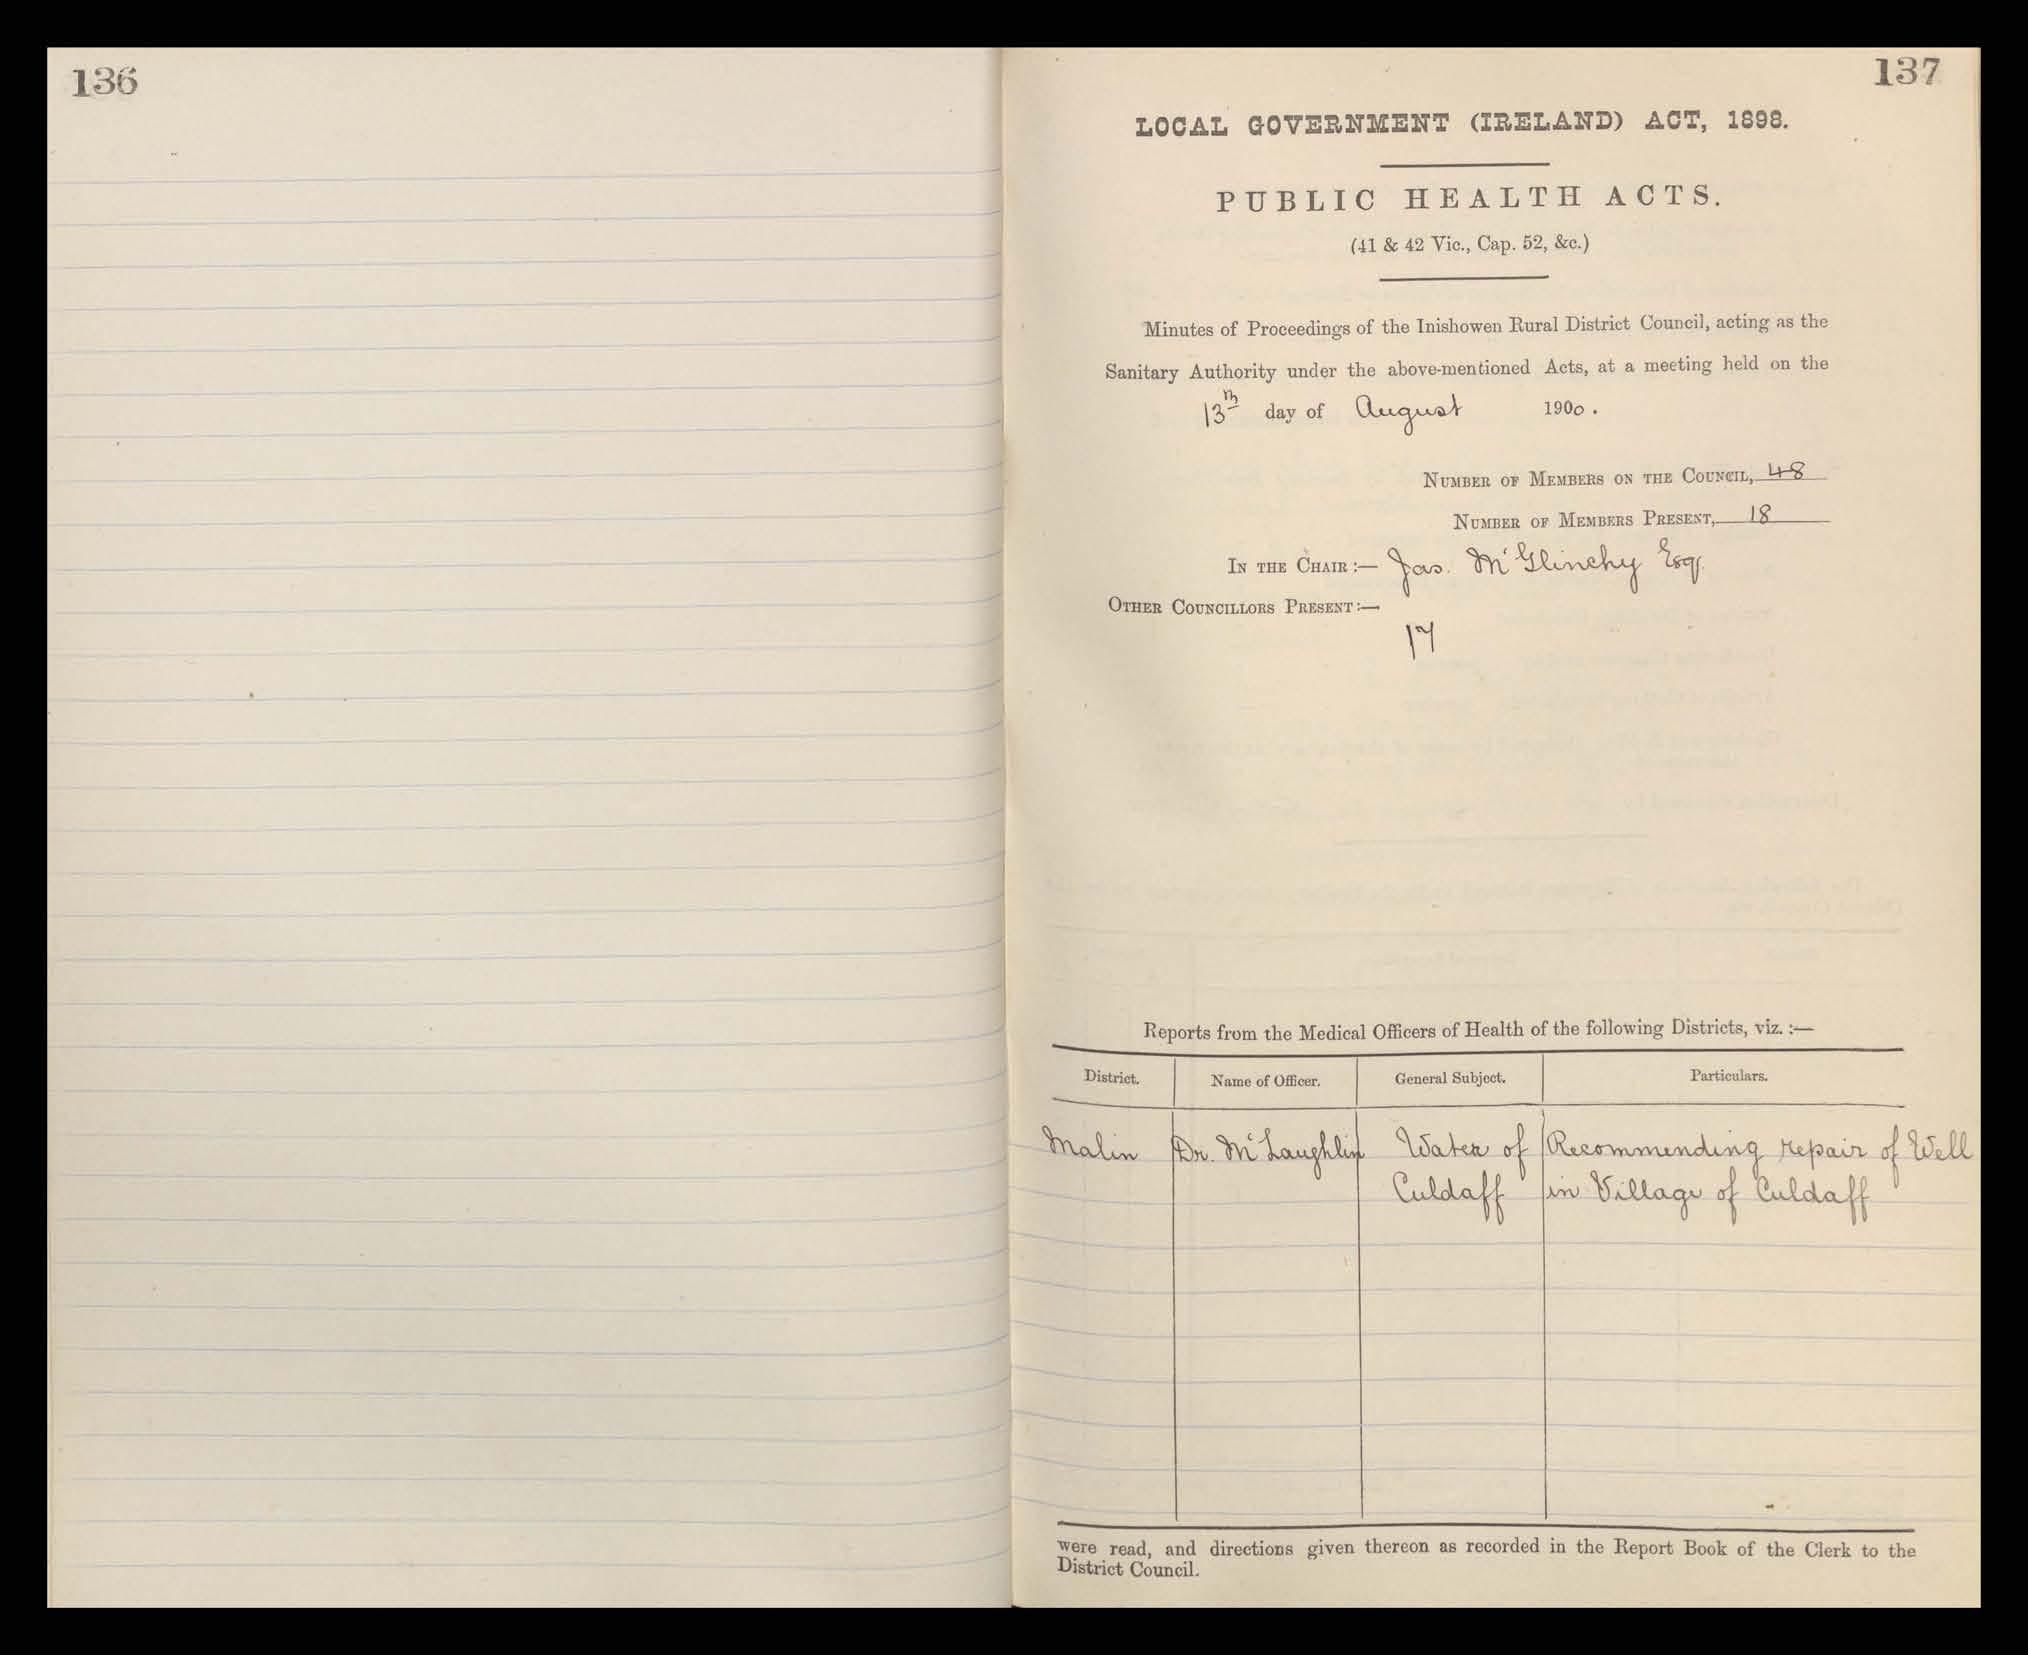 136
137
LOCAL GOVERNMENT (IRELAND) ACT, 1898.
PUBLIC HEALTH ACTS.
(41 & 42 Vic., Cap. 52, &c.)
Minutes of Proceedings of the Inishowen Rural District Council, acting as the
Sanitary Authority under the above-mentioned Acts, at a meeting held on the
13th day of August 1900.
NUMBER OF MEMBERS ON THE COUNCIL, 48
NUMBER OF MEMBERS PRESENT, 18
IN THE CHAIR:— Jas. McGlinchy Esq.
OTHER COUNCILLORS PRESENT:—
17
Reports from the Medical Officers of Health of the following Districts, viz.:—
District. Name of Officer. General Subject. Particulars.
Malin Dr. McLaughlin Water of Recommending repair of Well
Culdaff in Village of Culdaff
were read, and directions given thereon as recorded in the Report Book of the Clerk to the
District Council.